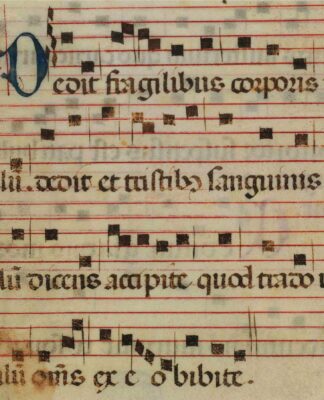 Dedit fragilibus corporis
lũ. dedit et tristibꝫ sanguinis
lũ dicens accipite quod trado
lũ om̃s ex e o bibite.